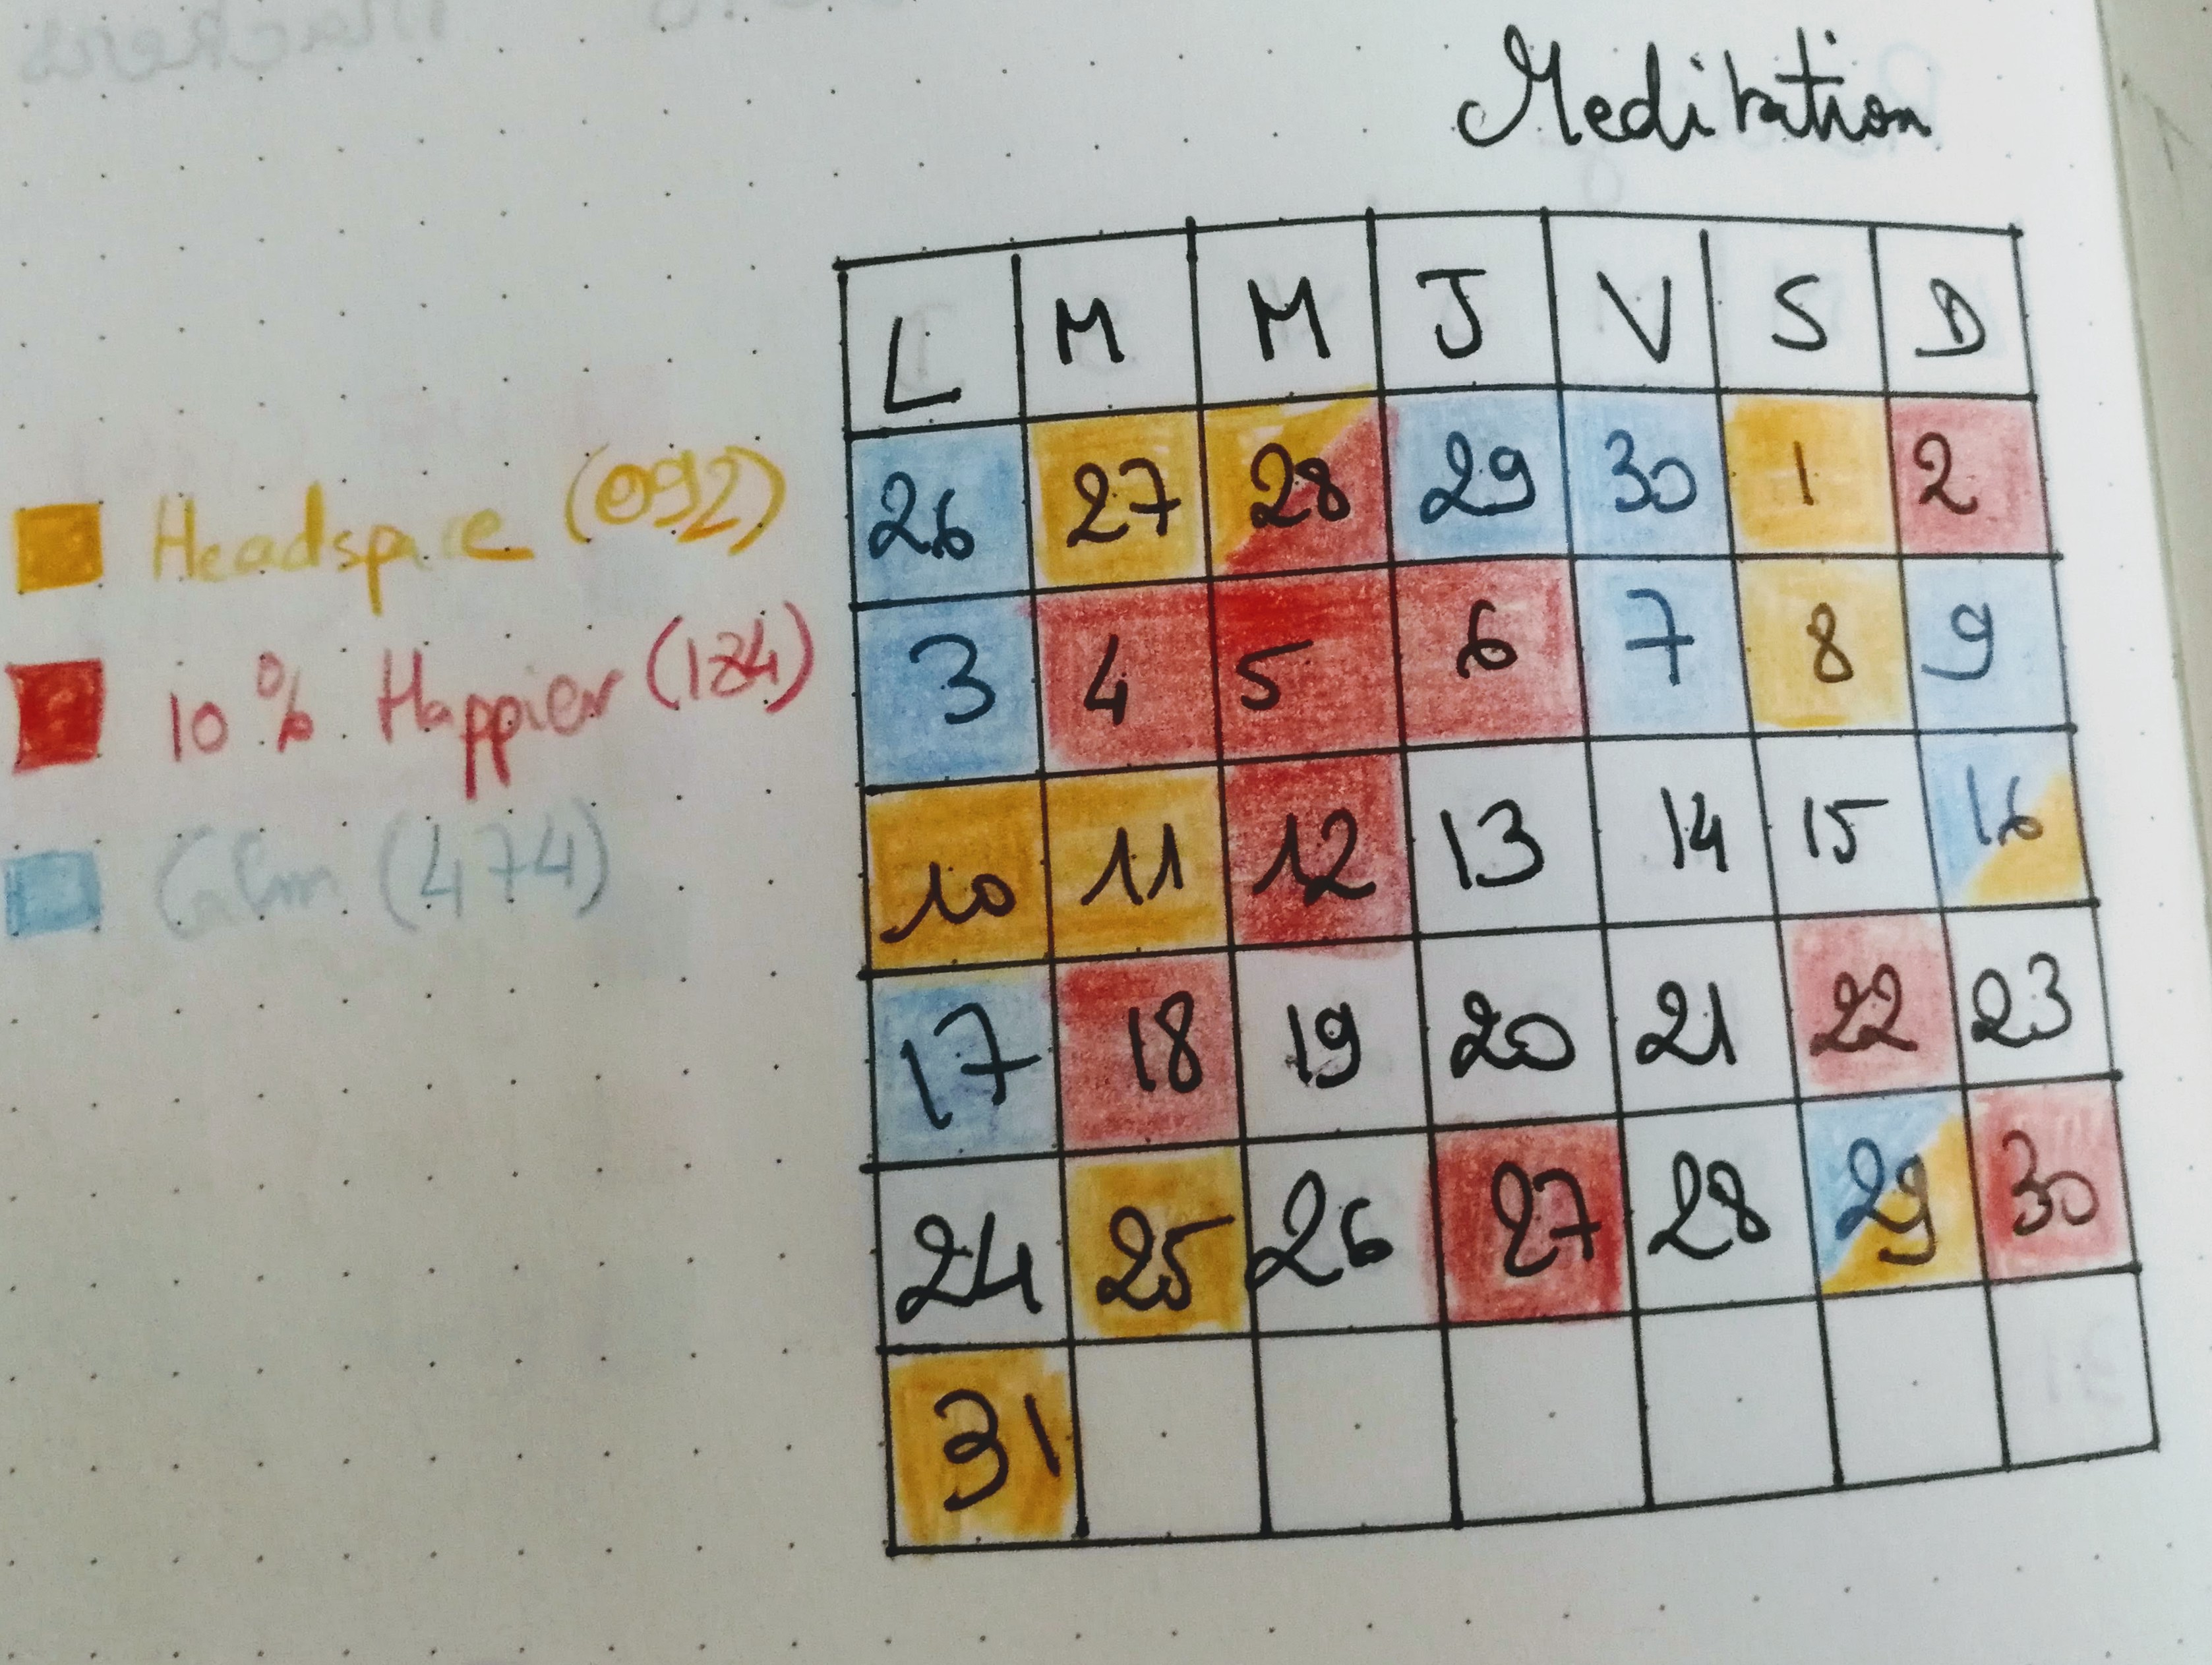 Meditation
L M M J V S D
26 27 28 29 30 1 2
3 4 5 6 7 8 9
10 11 12 13 14 15 16
17 18 19 20 21 22 23
24 25 26 27 28 29 30
31
Headspace (092)
10% Happier (184)
Calm (474)